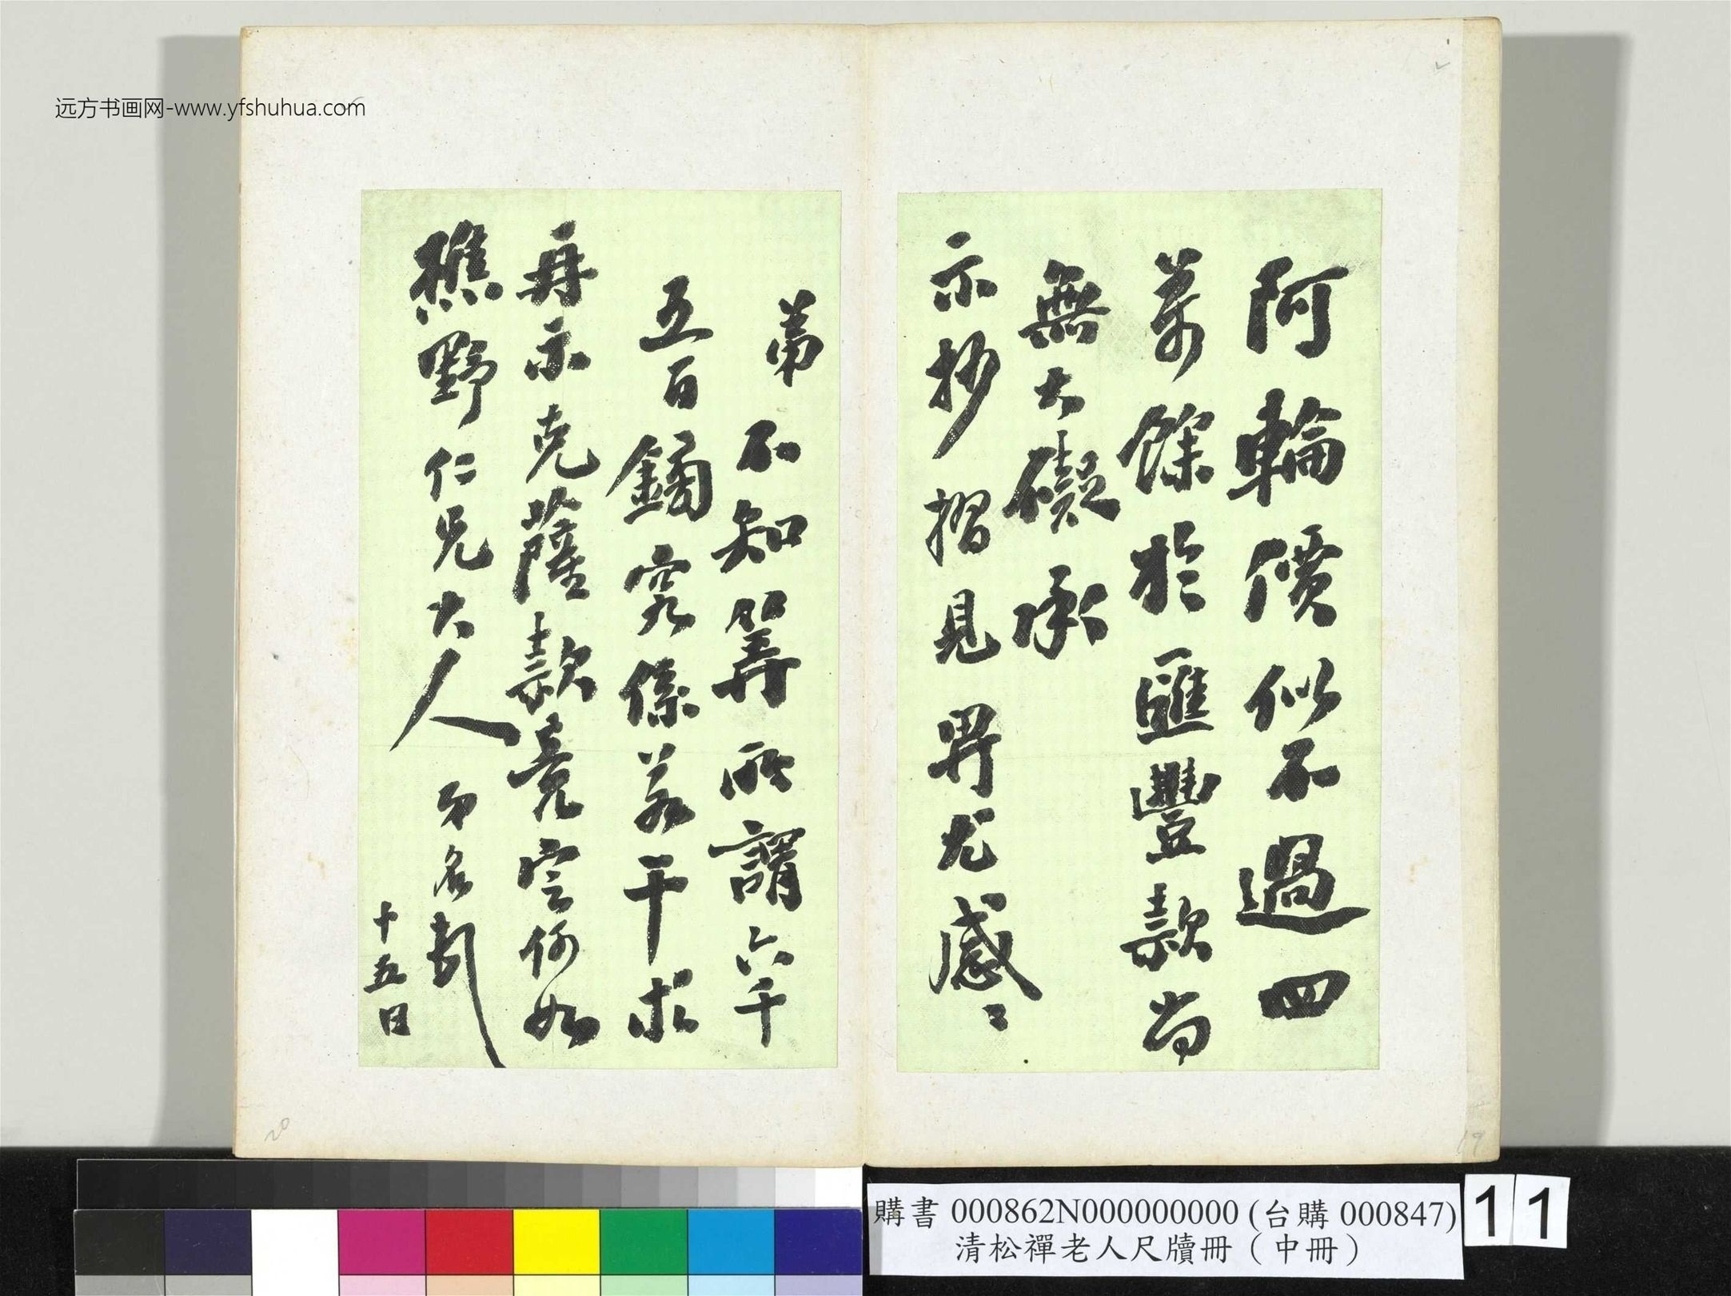 远方书画网-www.yfshuhua.com
阿輪價似不過四
萬餘於匯豐款尚
無大礙承
示抄摺見畀尤感〻
弟不知籌所謂六千
五百鎊究係若干求
再示克薩款竟空何如
樵野仁兄大人
弟名頓
十五日
20
19
購書 000862N000000000 (台購 000847)
清松禪老人尺牘冊（中冊）
11